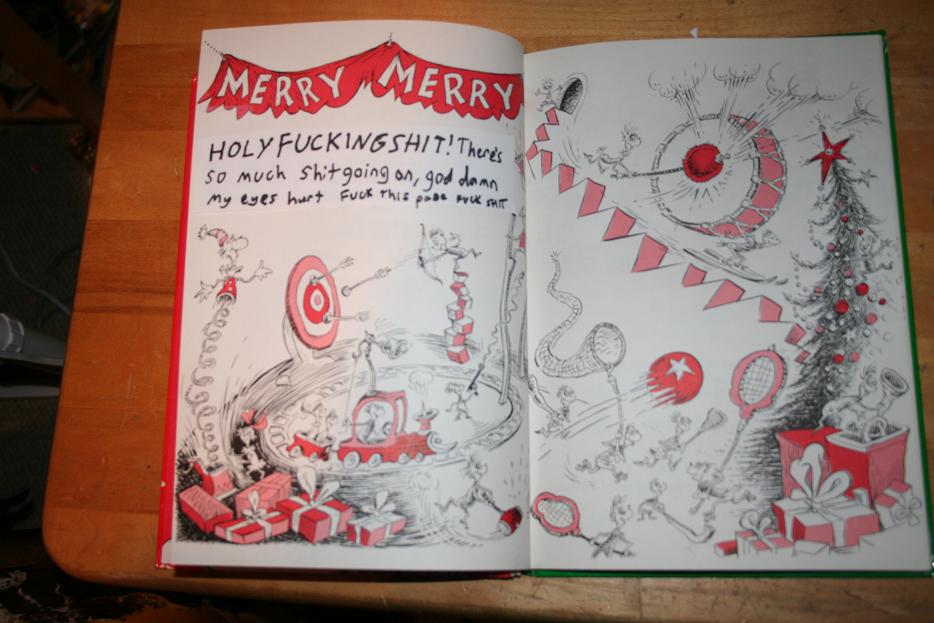 MERRY MERRY
HOLY FUCKING SHIT! There's
so much shit going on, god damn
my eyes hurt FUCK THIS page FUCK SHIT